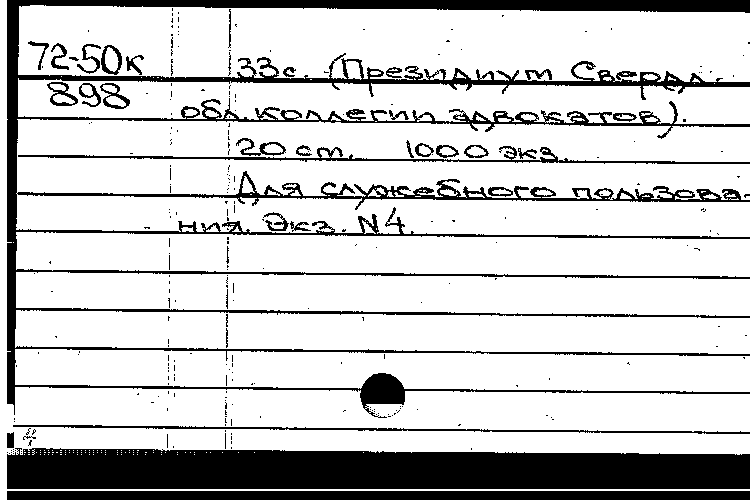 72-50к 33с. (Президиум Свердл.
898 обл. коллегии адвокатов).
20 см. 1000 экз.
Для служебного пользова-
ния. Экз. N4.